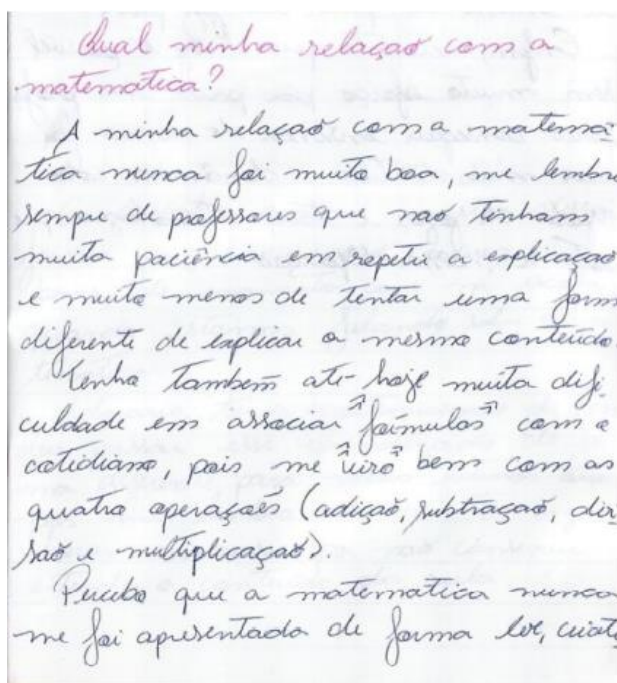 Qual minha relação com a
matemática?
A minha relação com a matemá-
tica nunca foi muito boa, me lembro
sempre de professores que não tinham
muita paciência em repetir a explicação
e muito menos de tentar uma form
diferente de explicar o mesmo conteúdo.
Tenho também até hoje muita difi-
culdade em associar "fórmulas" com o
cotidiano, pois me "viro" bem com as
quatro operações (adição, subtração, divi
são e multiplicação).
Percebo que a matemática nunca
me foi apresentada de forma leve, criati